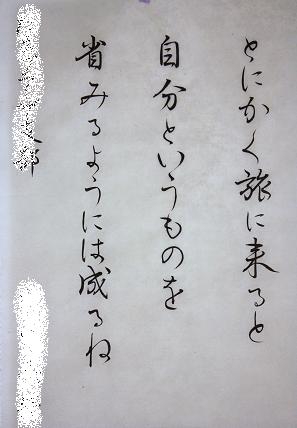 とにかく旅に来ると
自分というものを
省みるようには成るね